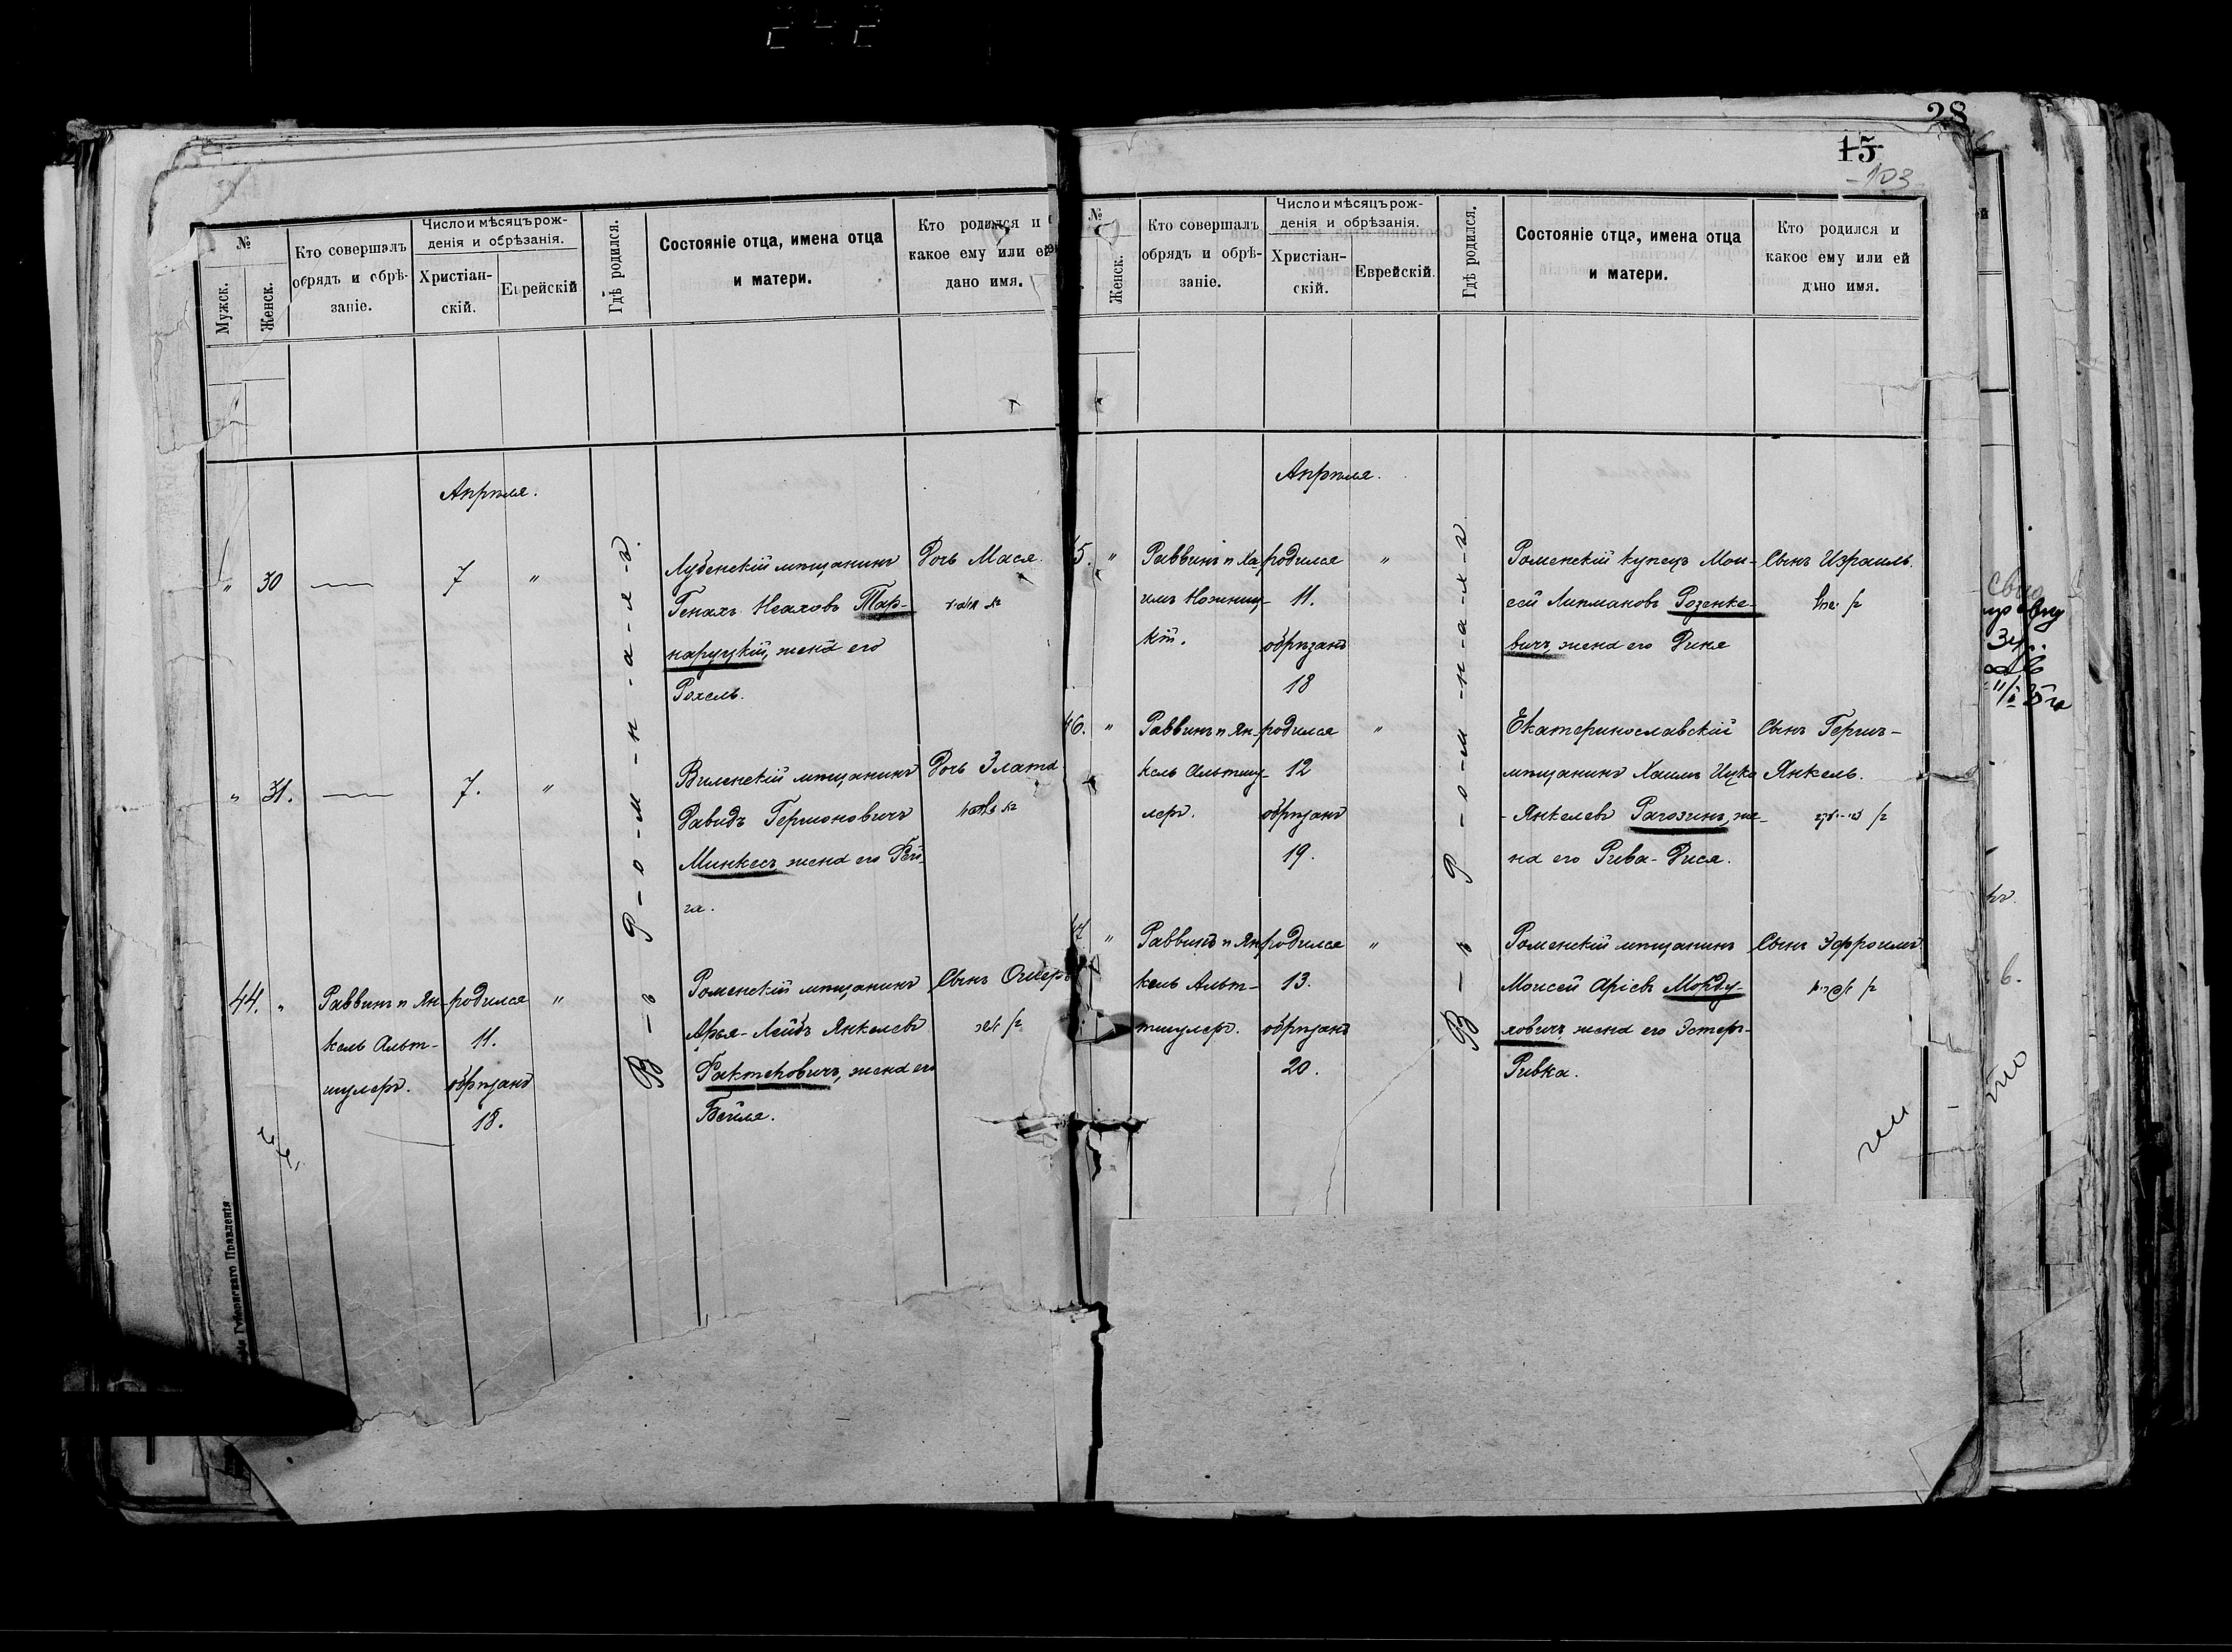 28
15
103
№
Мужск.
Женск.
Кто совершалъ
обрядъ и обрѣ-
заніе.
Число и мѣсяцъ рож-
денія и обрѣзанія.
Христіан-
скій.
Еврейскій
Гдѣ родился.
Состояніе отца, имена отца
и матери.
Кто родился и
какое ему или ей
дано имя.
Апрѣля.
В-ъ Р-о-м-н-а-х-ъ.
" 30
7 "
Лубенскій мѣщанинъ
Генахъ Неаховъ Тар-
наруцкій, жена его
Рохель.
Дочь Мася.
" 31.
7. "
Виленскій мѣщанинъ
Давидъ Гермоновичъ
Минкесъ, жена его Рей-
га.
Дочь Злата
44. "
Раввинъ и Ян-
кель Альт-
шулеръ.
родился
11.
обрѣзанъ
18.
"
Роменскій мѣщанинъ
Арья-Лейбъ Янкелевъ
Рактеновичъ, жена его
Бейля.
Сынъ Ошеръ
Губернскаго Правленія
№
Женск.
Кто совершалъ
обрядъ и обрѣ-
заніе.
Число и мѣсяцъ рож-
денія и обрѣзанія.
Христіан-
скій.
Еврейскій.
Гдѣ родился.
Состояніе отца, имена отца
и матери.
Кто родился и
какое ему или ей
дано имя.
Апрѣля.
В-ъ Р-о-м-н-а-х-ъ
5. "
Раввинъ и Ха-
имъ Ножниц-
кій.
родился
11.
обрѣзанъ
18
"
Роменскій купецъ Мои-
сей Липмановъ Розенке-
вичъ, жена его Диня
Сынъ Израиль.
46. "
Раввинъ и Ян-
кель Альтшу-
леръ.
родился
12
обрѣзанъ
19.
"
Екатеринославскій
мѣщанинъ Хаимъ Ицко
-Янкелевъ Рагозинъ, же-
на его Рива-Дися.
Сынъ Гершъ-
Янкель.
"
Раввинъ и Ян-
кель Альт-
шулеръ.
родился
13.
обрѣзанъ
20.
"
Роменскій мѣщанинъ
Моисей Аріевъ Морду-
ховичъ, жена его Эстеръ-
Ривка.
Сынъ Эфроимъ